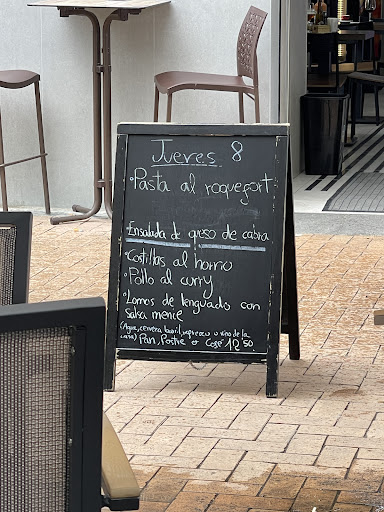 Jueves 8
·Pasta al roquefort
·Ensalada de queso de cabra
·Costillas al horno
·Pollo al curry
·Lomos de lenguado con
salsa menié
(Agua, cerveza barril, refresco o vino de la
casa) Pan, Postre o Cafe 12'50